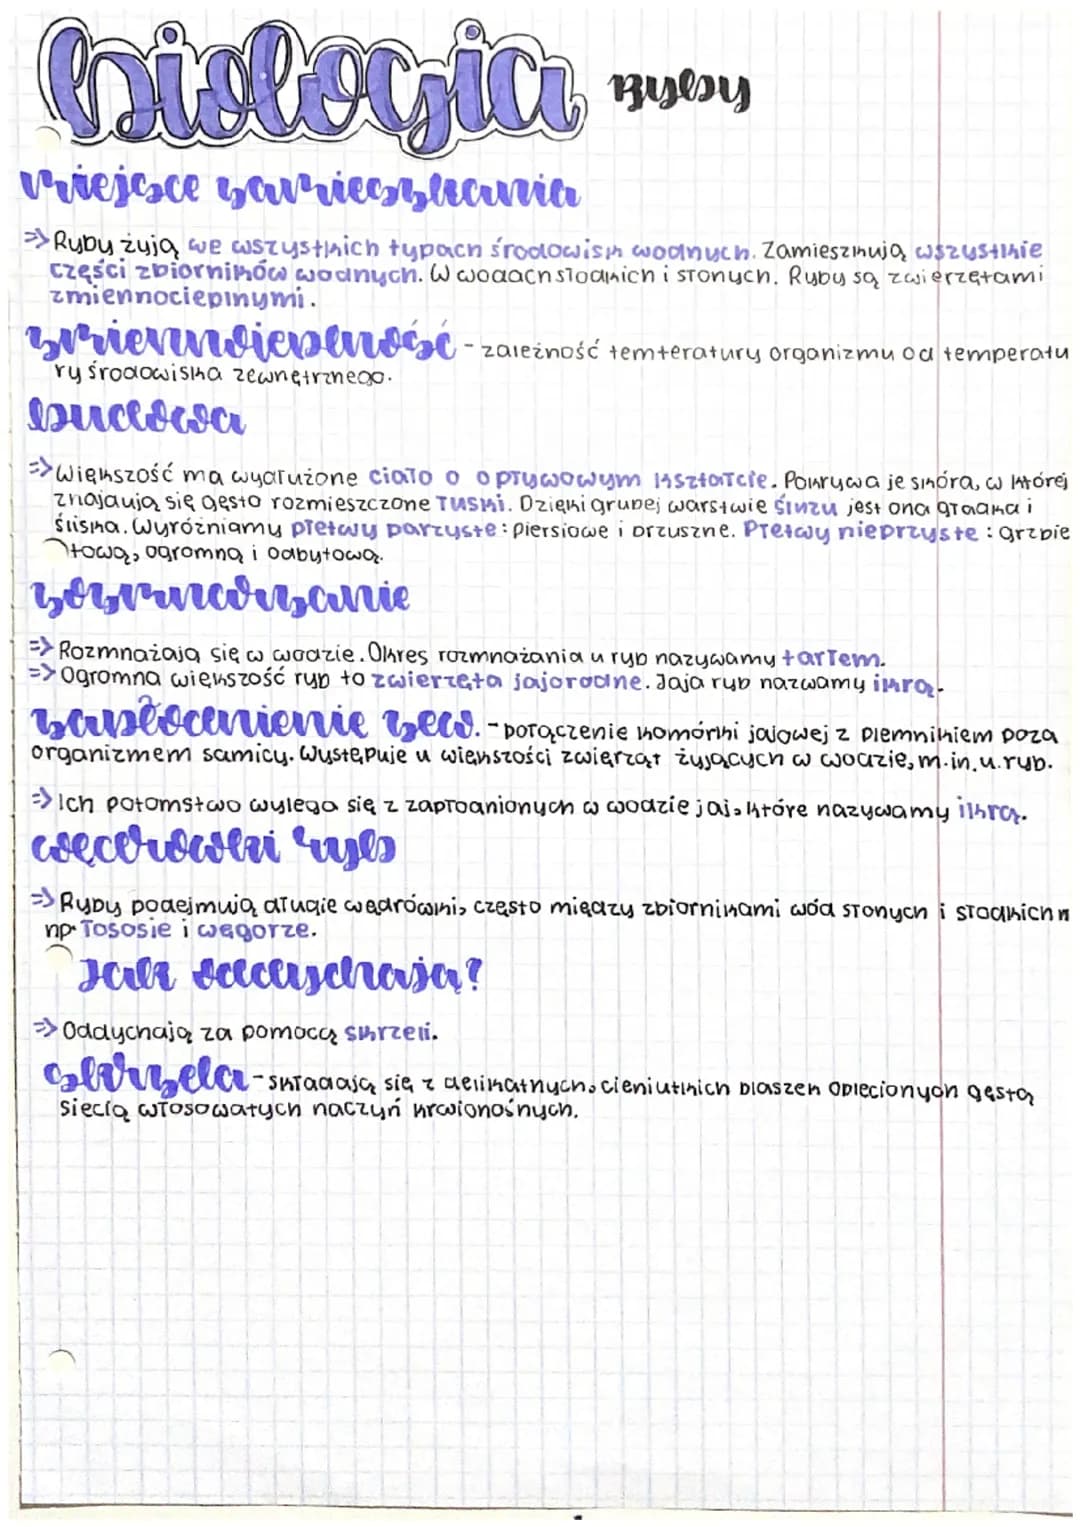 biologia Ryby
miejsce zamieszkania
=> Ryby żyją we wszystkich typach środowisk wodnych. Zamieszkują wszystkie
części zbiorników wodnych. W wodach słodkich i słonych. Ryby są zwierzętami
zmiennocieplnymi.
zmiennocieplność - zależność temteratury organizmu od temperatu
ry środowiska zewnętrznego.
budowa
=> Większość ma wydłużone ciało o opływowym kształcie. Pokrywa je skóra, w której
znajdują się gęsto rozmieszczone łuski. Dzięki grubej warstwie śluzu jest ona gładka i
śliska. Wyróżniamy płetwy parzyste: piersiowe i brzuszne. Płetwy nieprzyste: grzbie
tową, ogromną i odbytową.
rozmnażanie
=> Rozmnażają się w wodzie. Okres rozmnażania u ryb nazywamy tarłem.
=> Ogromna większość ryb to zwierzęta jajorodne. Jaja ryb nazwamy ikrą.
zapłocenienie zew. - połączenie komórki jajowej z plemnikiem poza
organizmem samicy. Występuje u większości zwierząt żyjących w wodzie, m.in. u. ryb.
=> Ich potomstwo wylęga się z zapłodnionych w wodzie jaj, które nazywamy ikrą.
wędrówki ryb
=> Ryby podejmują długie wędrówki, często między zbiornikami wód słonych i słodkich n
np. łososie i węgorze.
Jak oddychają?
=> Oddychają za pomocą skrzeli.
skrzela - składają się z delikatnych, cieniutkich blaszek oplecionych gęstą
siecią włosowatych naczyń krwionośnych.